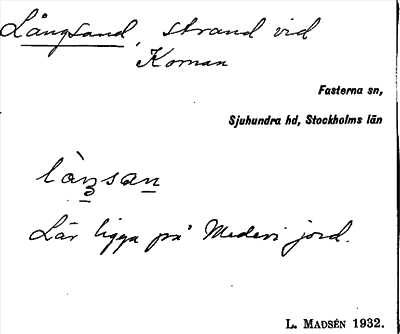 Långsand, strand vid
Koman
Fasterna sn,
Sjuhundra hd, Stockholms län
làŋsan
Lär ligga på Medevi jord.
L. MADSÉN 1932.